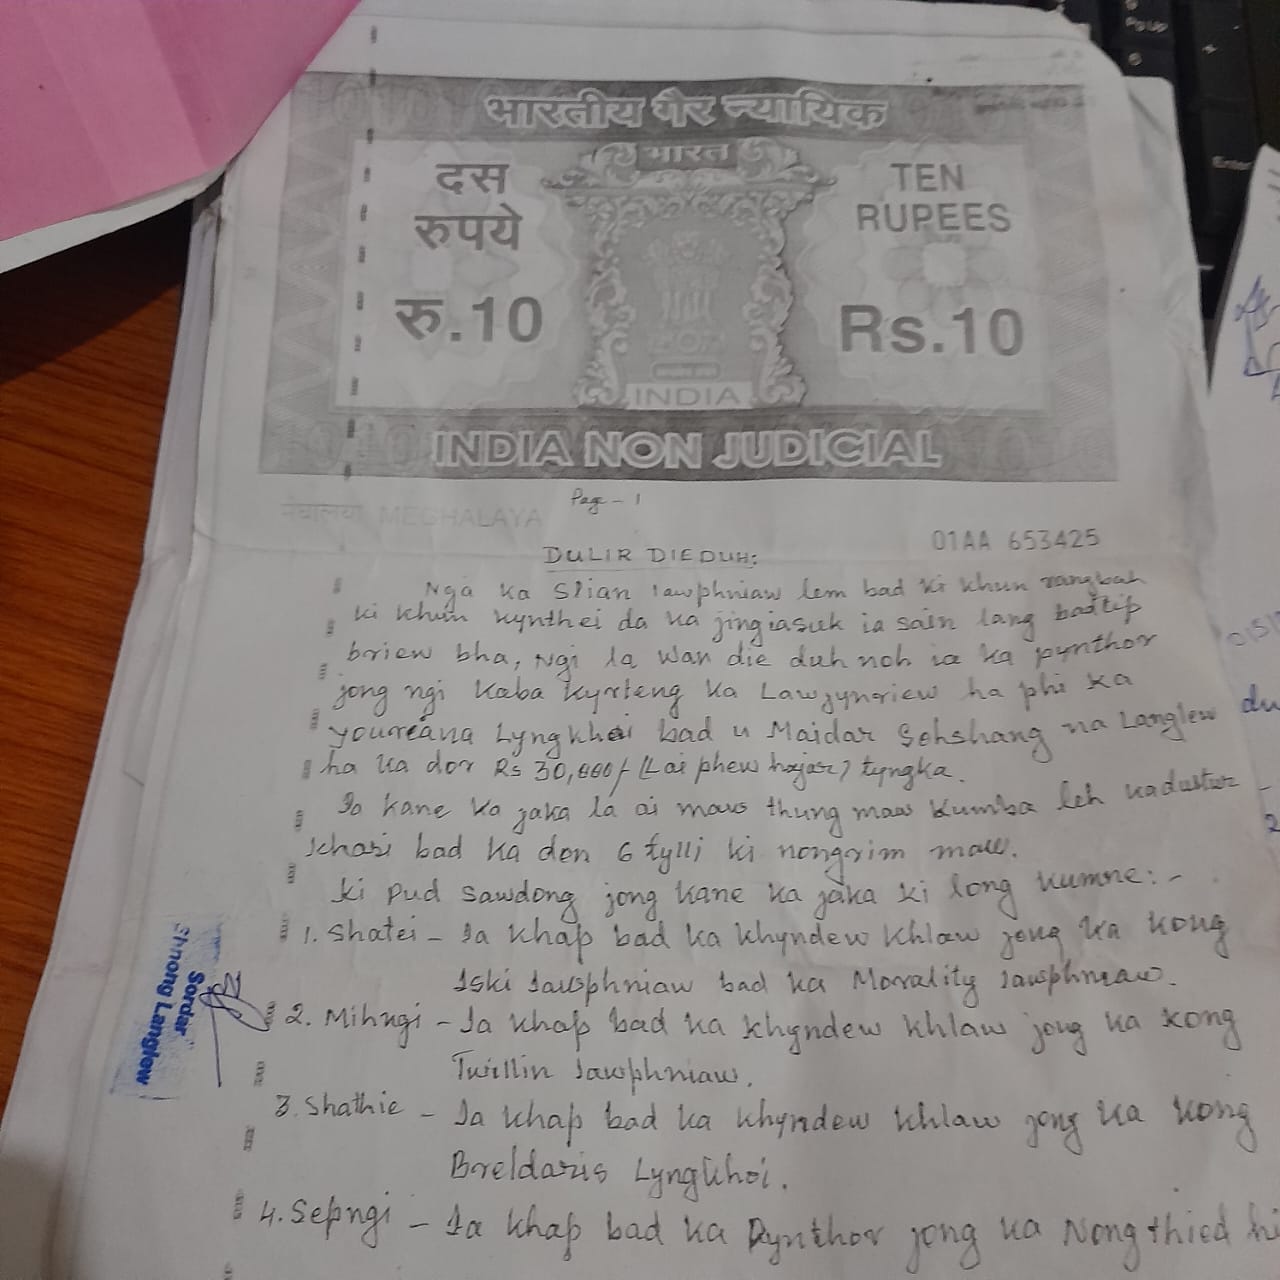 भारतीय गैर न्यायिक
भारत
दस
रुपये
रु.10
TEN
RUPEES
Rs.10
INDIA
INDIA NON JUDICIAL
Page - 1
मेघालया MEGHALAYA
01AA 653425
DULIR DIEDUH:
Nga ka Slian Iawphniaw lem bad ki khun rangbah
ki khun kynthei da ka jingiasuk ia sain lang bad tip
briew bha, Ngi la wan die duh noh ia ka pynthor
jong ngi kaba kyrteng ka Lawjynriew ha phi ka
youreana Lyngkhoi bad u Maidar Sohshang na Langlew
ha ka dor Rs 30,000/- (Lai phew hajar) tyngka.
Ia kane ka jaka la ai maw thung maw kumba leh ka dustur
Khasi bad ka don 6 tylli ki nongrim maw.
ki pud sawdong jong kane ka jaka ki long kumne:-
1. Shatei - Ia khap bad ka khyndew khlaw jong ka kong
Iski Iawphniaw bad ka Morality Iawphniaw.
2. Mihngi - Ia khap bad ka khyndew khlaw jong ka kong
Twillin Iawphniaw.
3. Shathie - Ia khap bad ka khyndew khlaw jong ka kong
Breldaris Lyngkhoi.
4. Sepngi - Ia khap bad ka Pynthor jong ka Nongthied hi
Sordar
Shnong Langlew
Enter